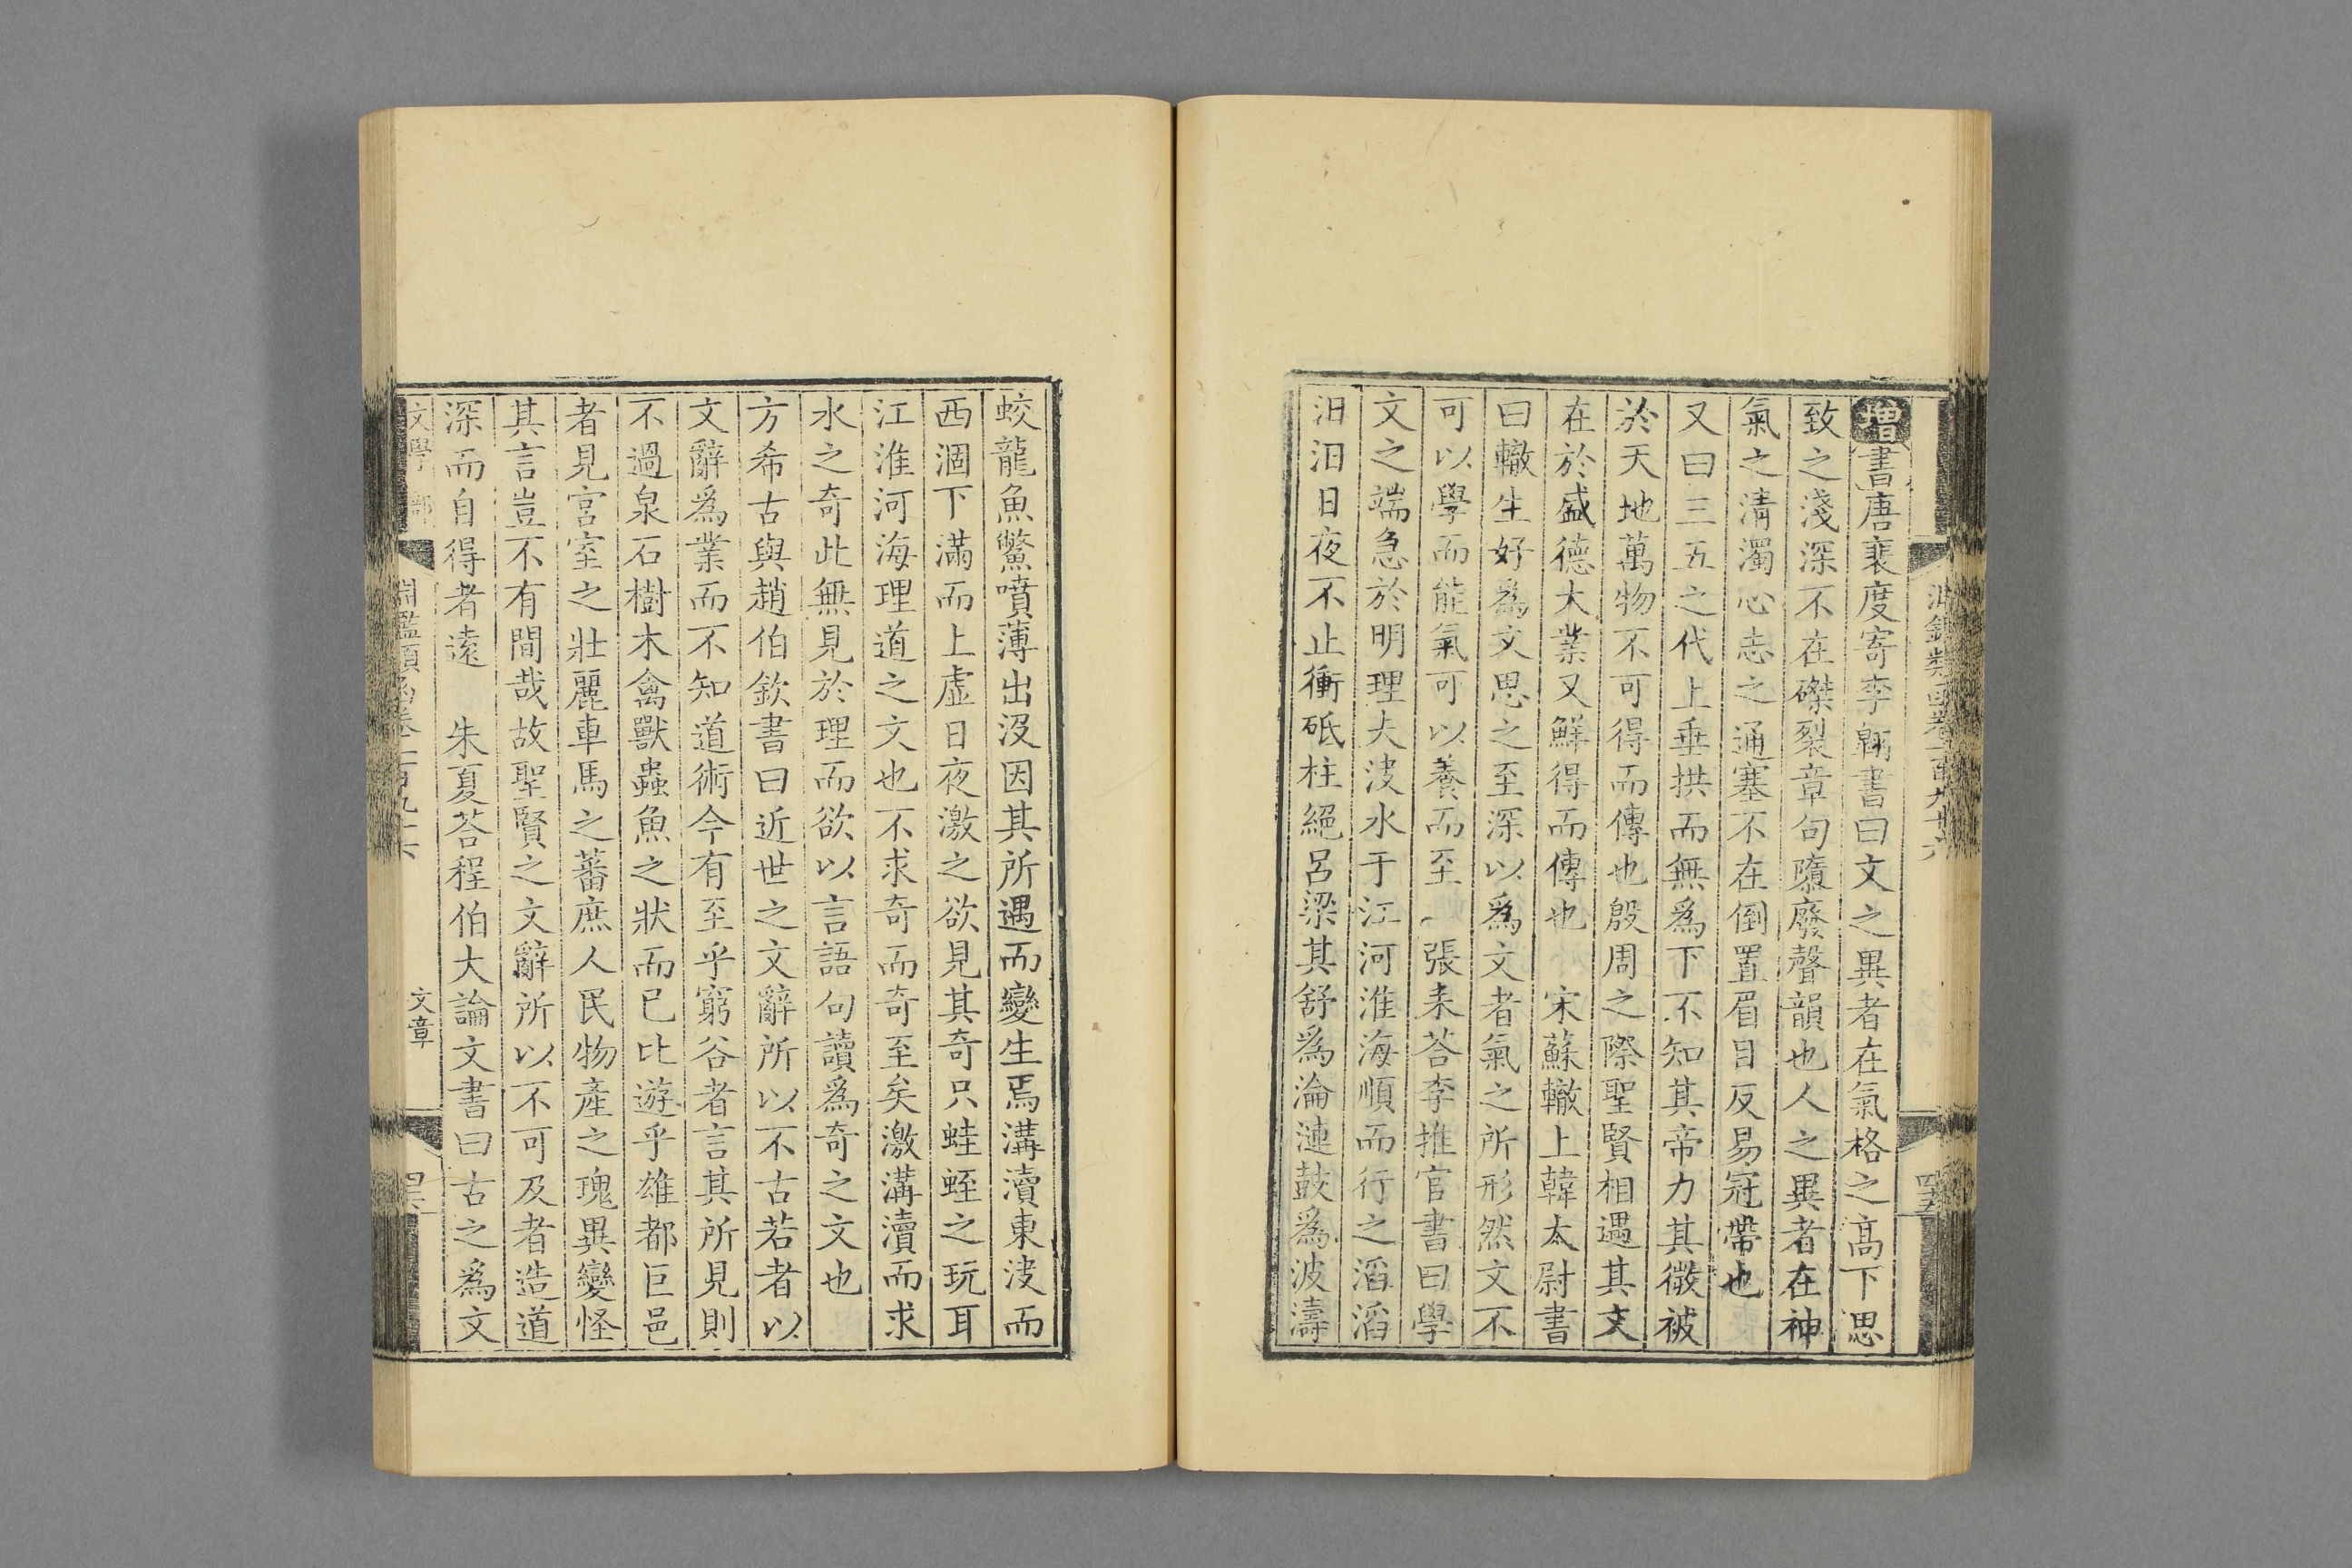 增書唐裴度寄李翱書曰文之異者在氣格之高下思
致之淺深不在磔裂章句隳廢聲韻也人之異者在神
氣之清濁心志之通塞不在倒置眉目反易冠帶也
又曰三五之代上垂拱而無爲下不知其帝力其徵被
於天地萬物不可得而傳也殷周之際聖賢相遇其文
在於盛德大業又鮮得而傳也　宋蘇轍上韓太尉書
曰轍生好爲文思之至深以爲文者氣之所形然文不
可以學而能氣可以養而至　張耒荅李推官書曰學
文之端急於明理夫决水于江河淮海順而行之滔滔
汨汨日夜不止衝砥柱絕呂梁其舒爲淪漣鼓爲波濤
蛟龍魚鱉噴薄出沒因其所遇而變生焉溝瀆東决而
西涸下滿而上虛日夜激之欲見其奇只蛙蛭之玩耳
江淮河海理道之文也不求奇而奇至矣激溝瀆而求
水之奇此無見於理而欲以言語句讀爲奇之文也
方希古與趙伯欽書曰近世之文辭所以不古若者以
文辭爲業而不知道術今有至乎窮谷者言其所見則
不過泉石樹木禽獸蟲魚之狀而已比遊乎雄都巨邑
者見宮室之壯麗車馬之蕃庶人民物產之瑰異變怪
其言豈不有間哉故聖賢之文辭所以不可及者造道
深而自得者遠　朱夏荅程伯大論文書曰古之爲文
文學部
淵鑑類函卷一百九十六
文章